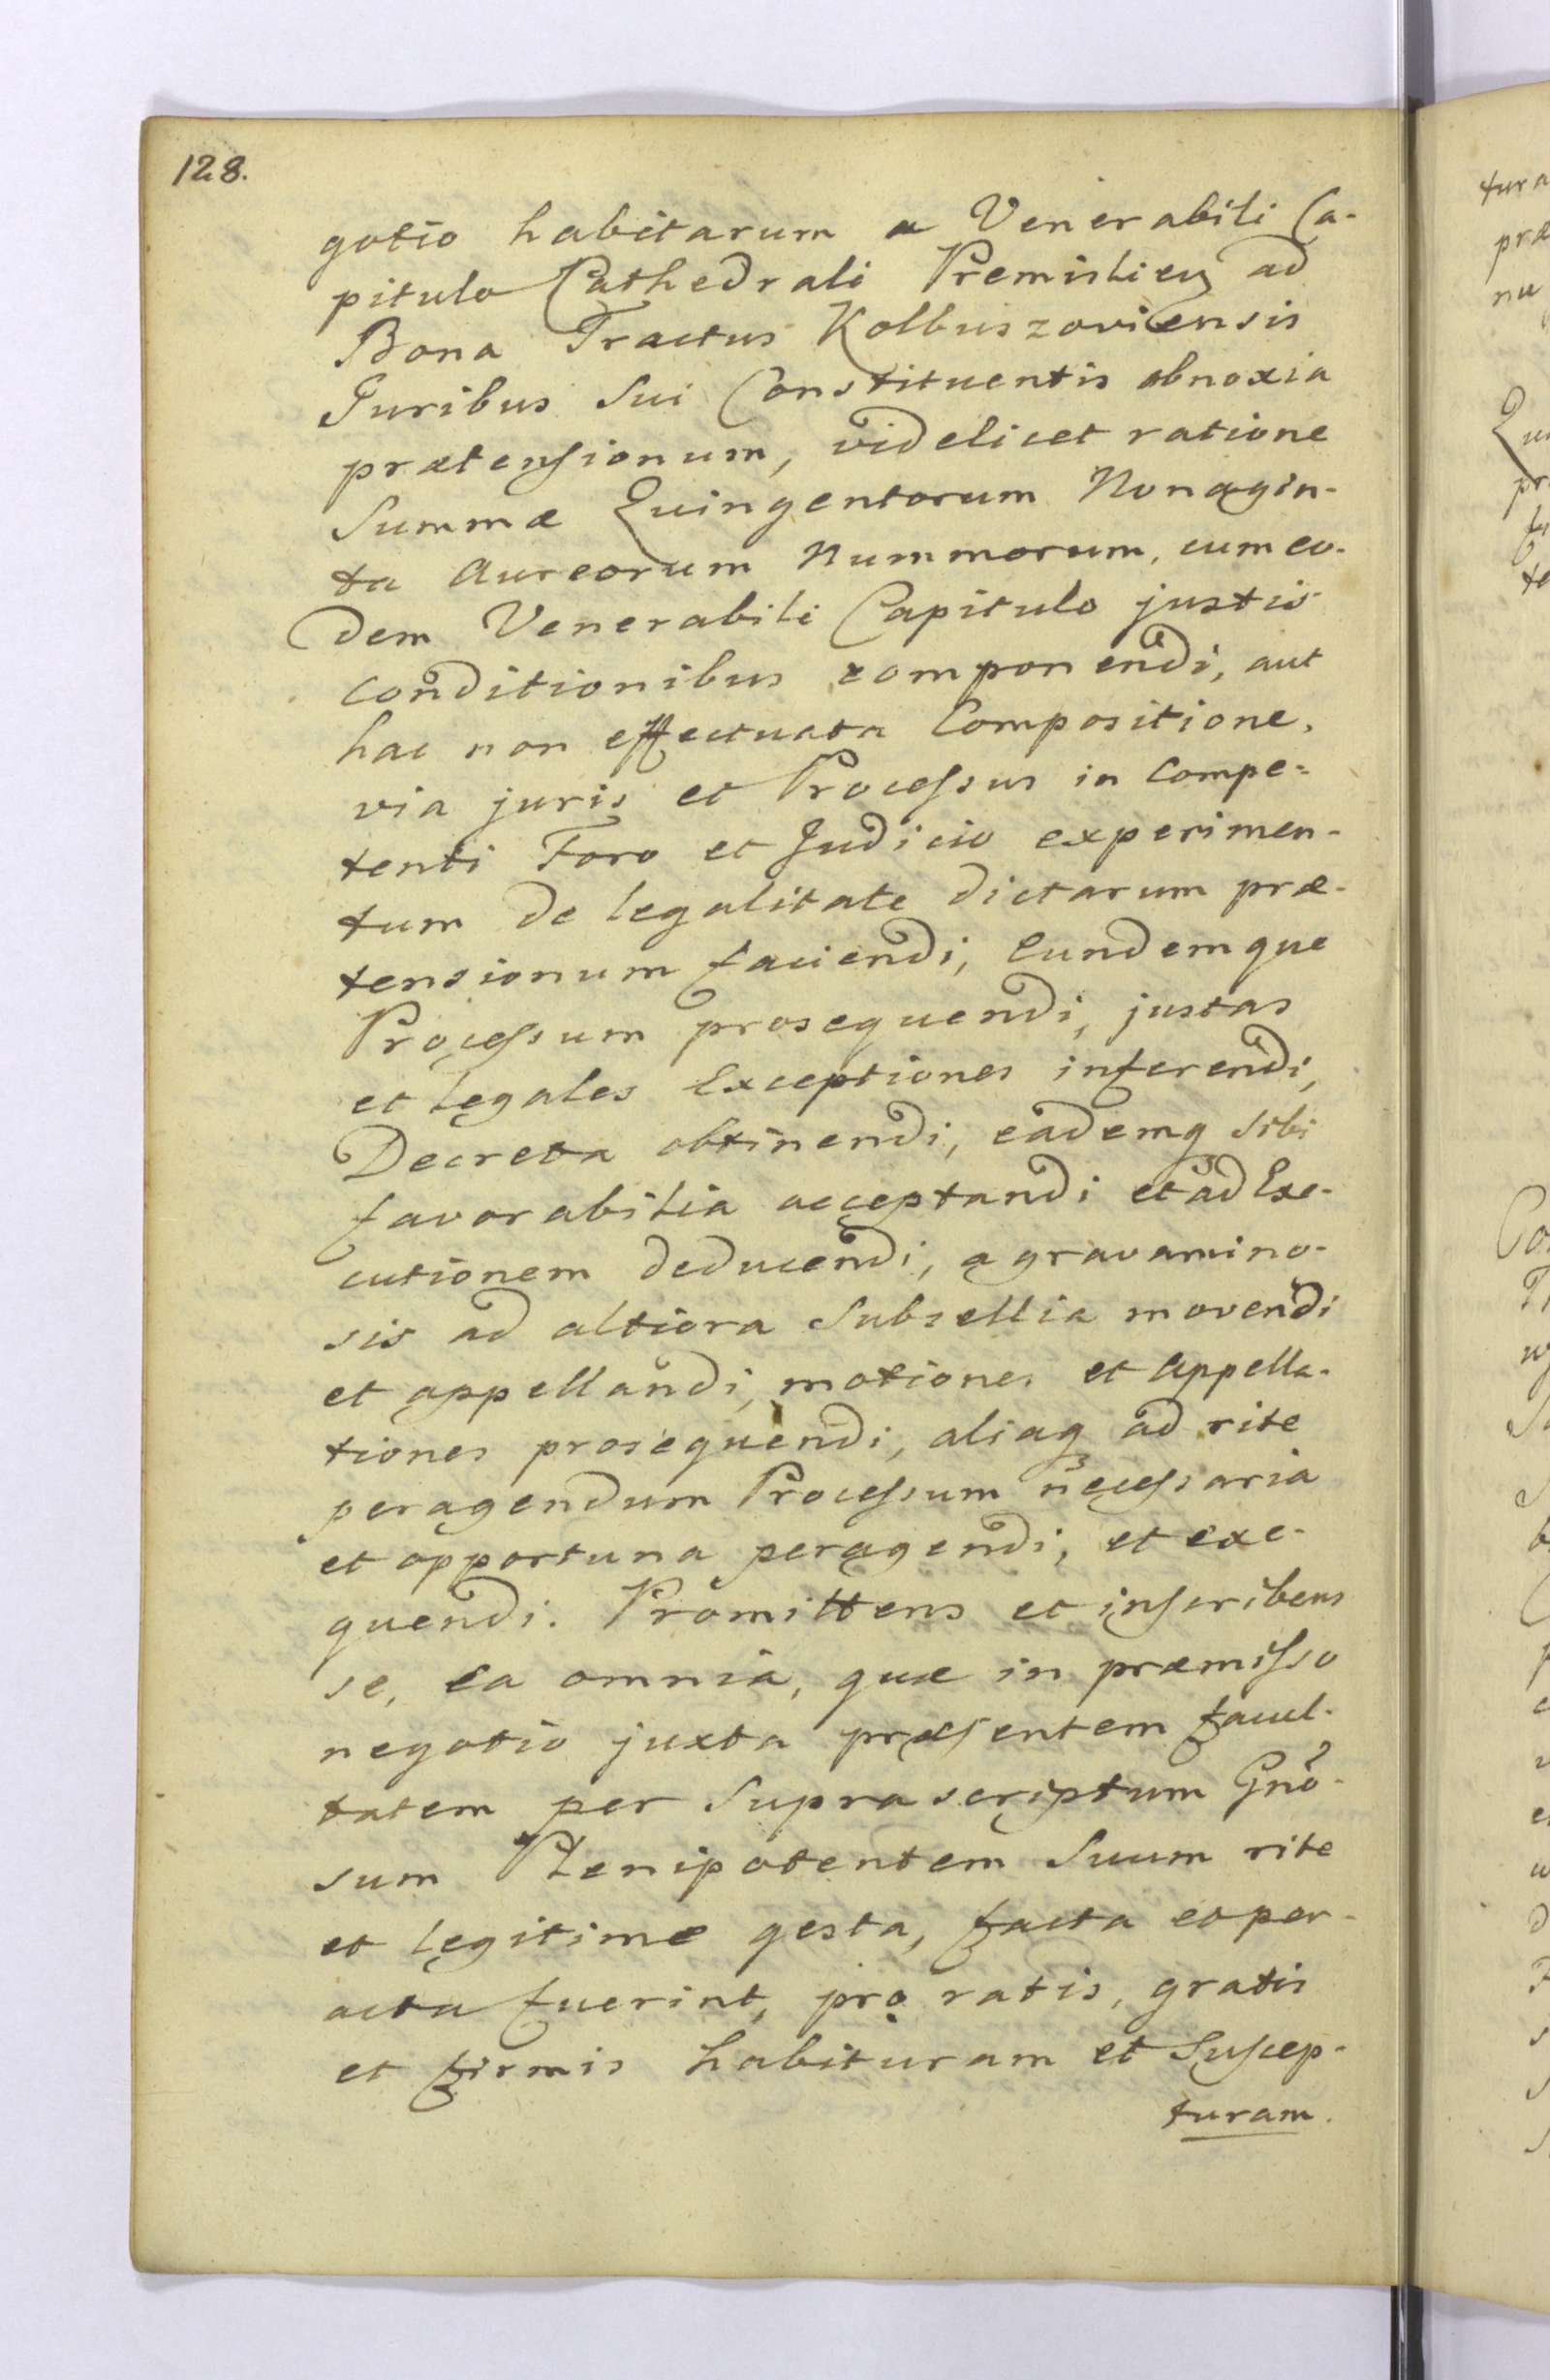 128.
gotio habitarum a Venerabili Ca-
pitulo Cathedrali Premislien ad
Bona Tractus Kolbuszoviensis
Juribus Sui Constituentis obnoxia
prætensionum, videlicet ratione
Summæ Quingentorum Nonagin-
ta Aureorum Nummorum, cum eo-
dem Venerabili Capitulo justis
conditionibus componendi, aut
hac non effectuata Compositione,
via juris et Processus in Compe-
tenti Foro et Judicio experimen-
tum de legalitate dictarum præ-
tensionum faciendi, Eundemque
Processum prosequendi, justas
et legales Exceptiones inferendi,
Decreta obtinendi, eademq sibi
favorabilia acceptandi et ad Exe-
cutionem deducendi, a gravamino-
sis ad altiora Subsellia movendi
et appellandi, motiones et Appella-
tiones prosequendi, aliaq ad rite
peragendum Processum necessaria
et opportuna peragendi, et exe-
quendi. Promittens et inscribens
se, ea omnia, quæ in præmisso
negotio juxta præsentem facul-
tatem per Suprascriptum Gnō-
sum Plenipotentem Suum rite
et legitime gesta, facta et per-
acta fuerint, pro ratis, gratis
et firmis habituram et Suscep-
turam.
tura
præ